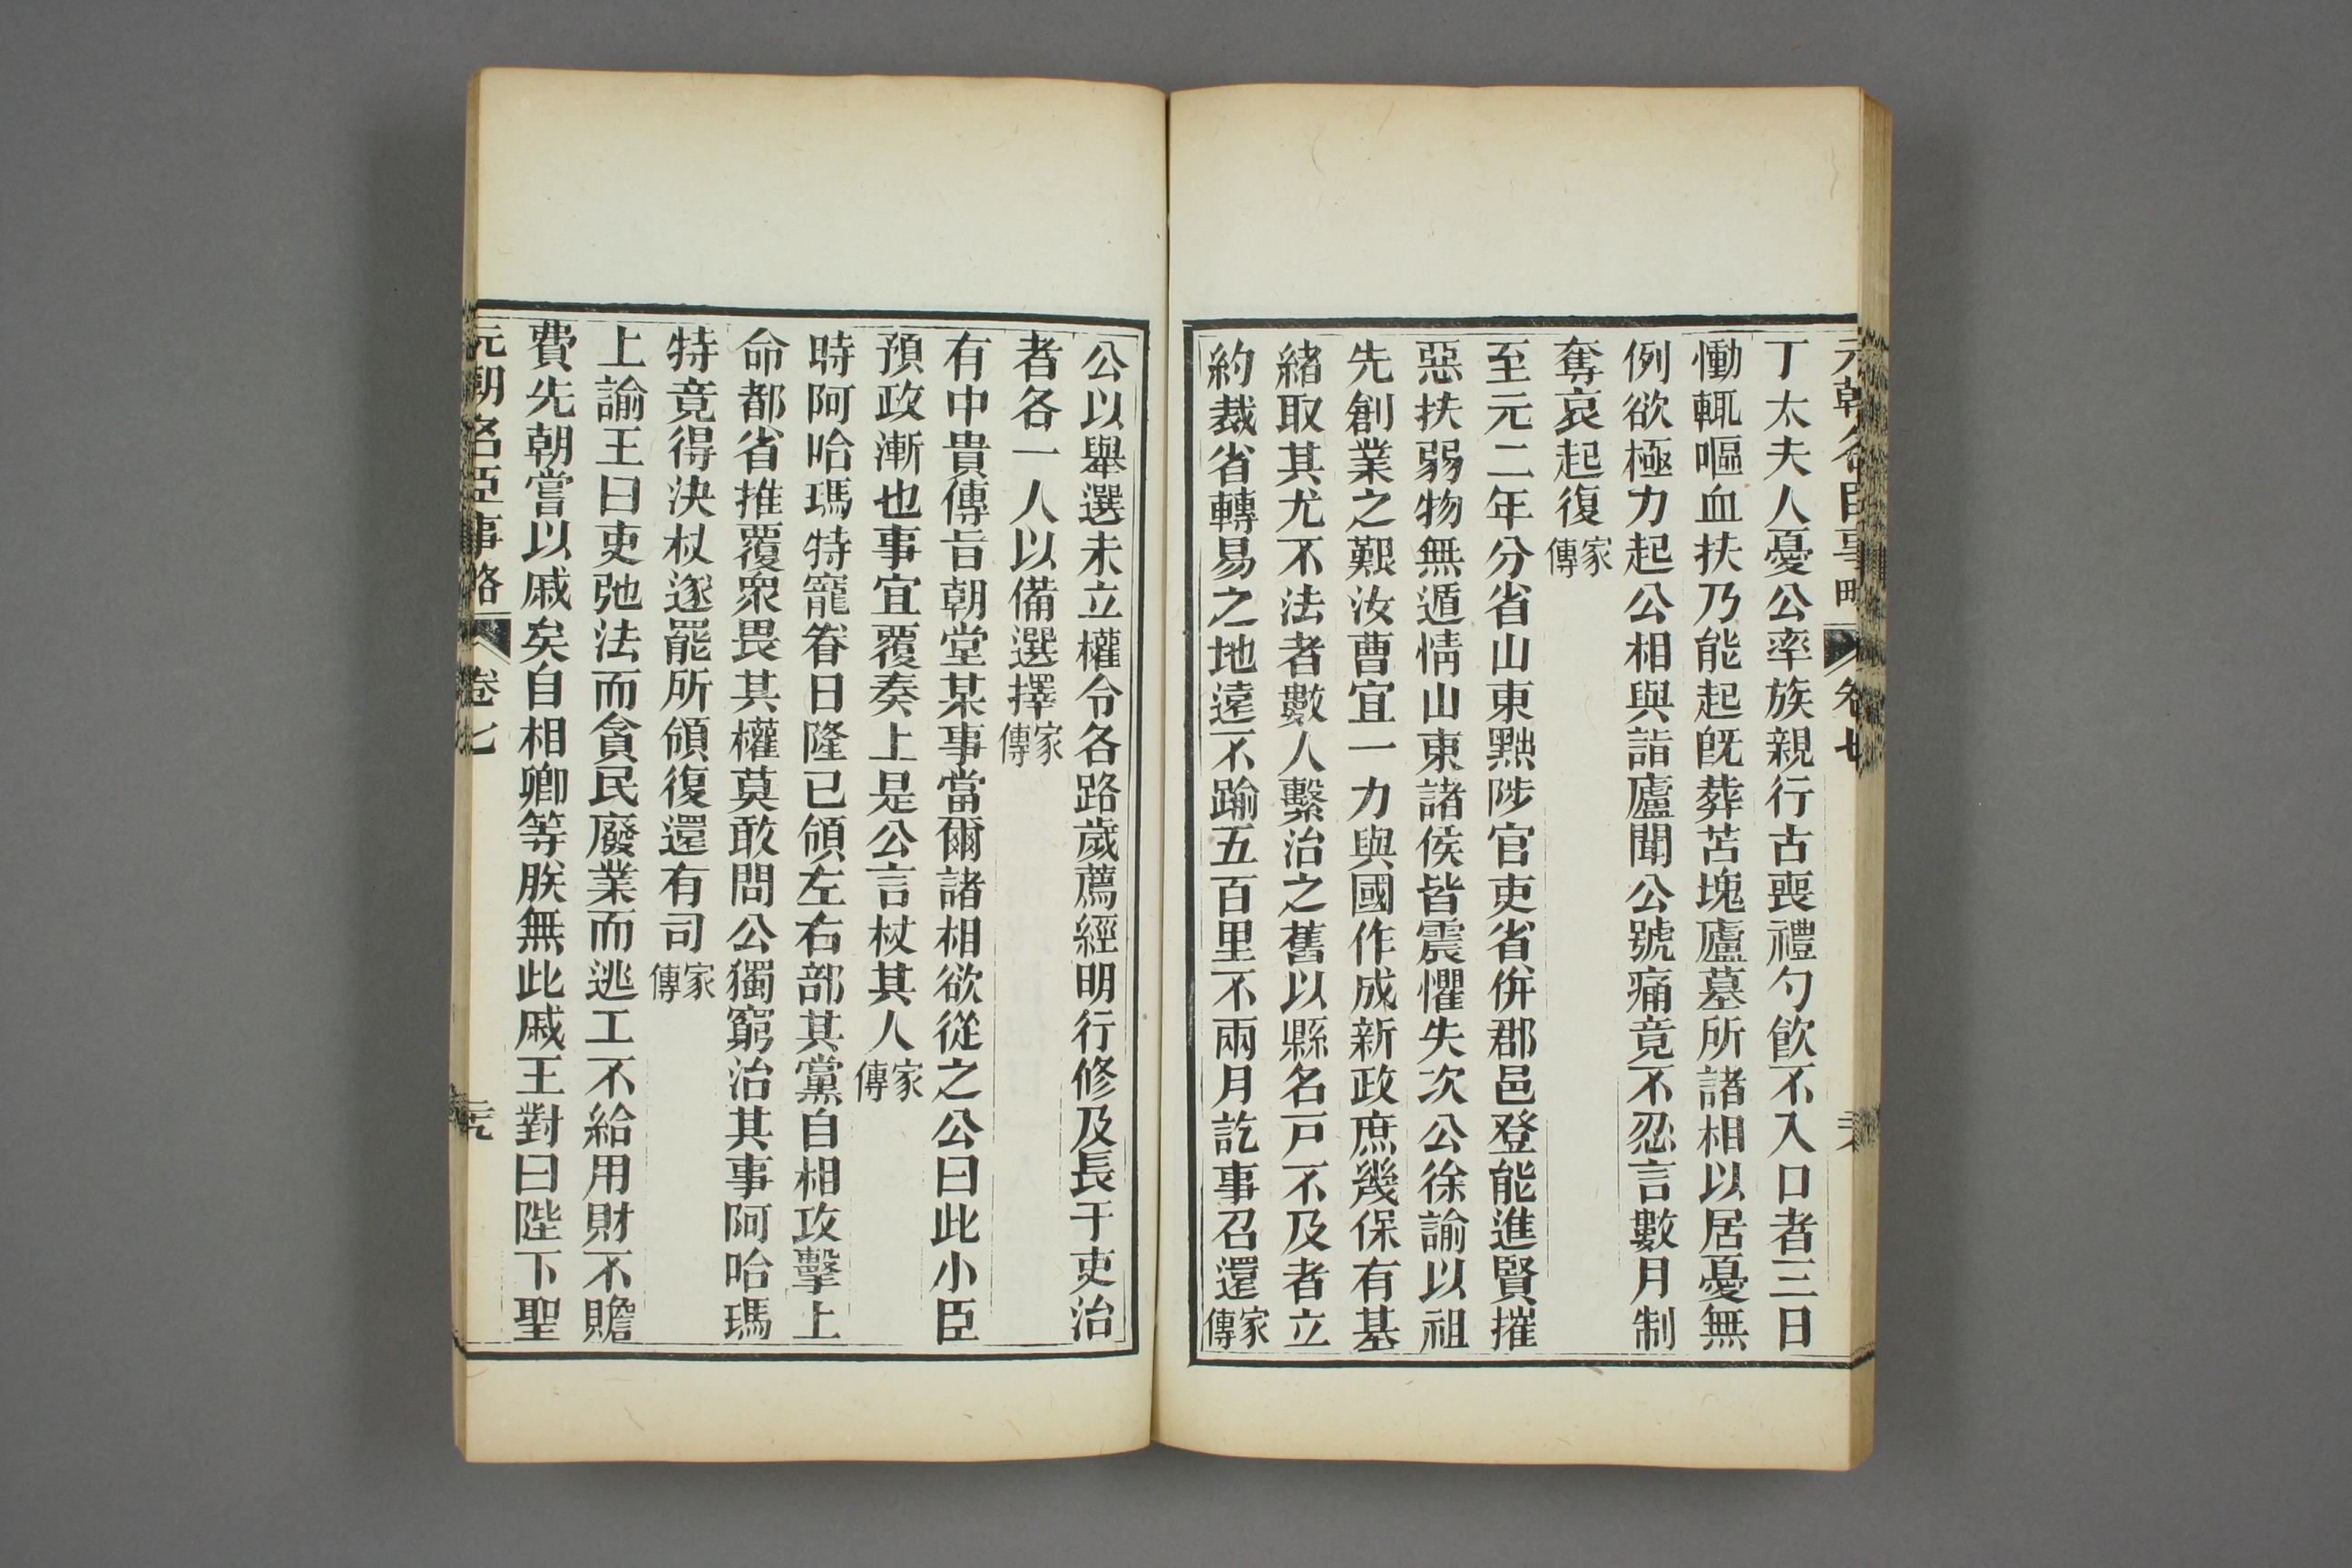 元朝名臣事略 卷七
丁太夫人憂公率族親行古喪禮勺飮不入口者三日
慟輒嘔血扶乃能起旣葬苫塊廬墓所諸相以居憂無
例欲極力起公相與詣廬聞公號痛竟不忍言數月制
奪哀起復家傳
至元二年分省山東黜陟官吏省併郡邑登能進賢摧
惡扶弱物無遁情山東諸侯皆震懼失次公徐諭以祖
先創業之艱汝曹宜一力與國作成新政庶幾保有基
緒取其尤不法者數人繫治之舊以縣名戸不及者立
約裁省轉易之地遠不踰五百里不兩月訖事召還家傳
公以舉選未立權令各路歲薦經明行修及長于吏治
者各一人以備選擇家傳
有中貴傳旨朝堂某事當爾諸相欲從之公曰此小臣
預政漸也事宜覆奏上是公言杖其人家傳
時阿哈瑪特寵眷日隆已領左右部其黨自相攻擊上
命都省推覆衆畏其權莫敢問公獨窮治其事阿哈瑪
特竟得決杖逐罷所領復還有司家傳
上諭王曰吏弛法而貪民廢業而逃工不給用財不贍
費先朝嘗以戚矣自相卿等朕無此戚王對曰陛下聖
元朝名臣事略 卷七 二九